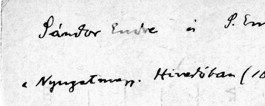 Sándor Endre és S. Em
a Nyugatmagy. Hiradóban (10